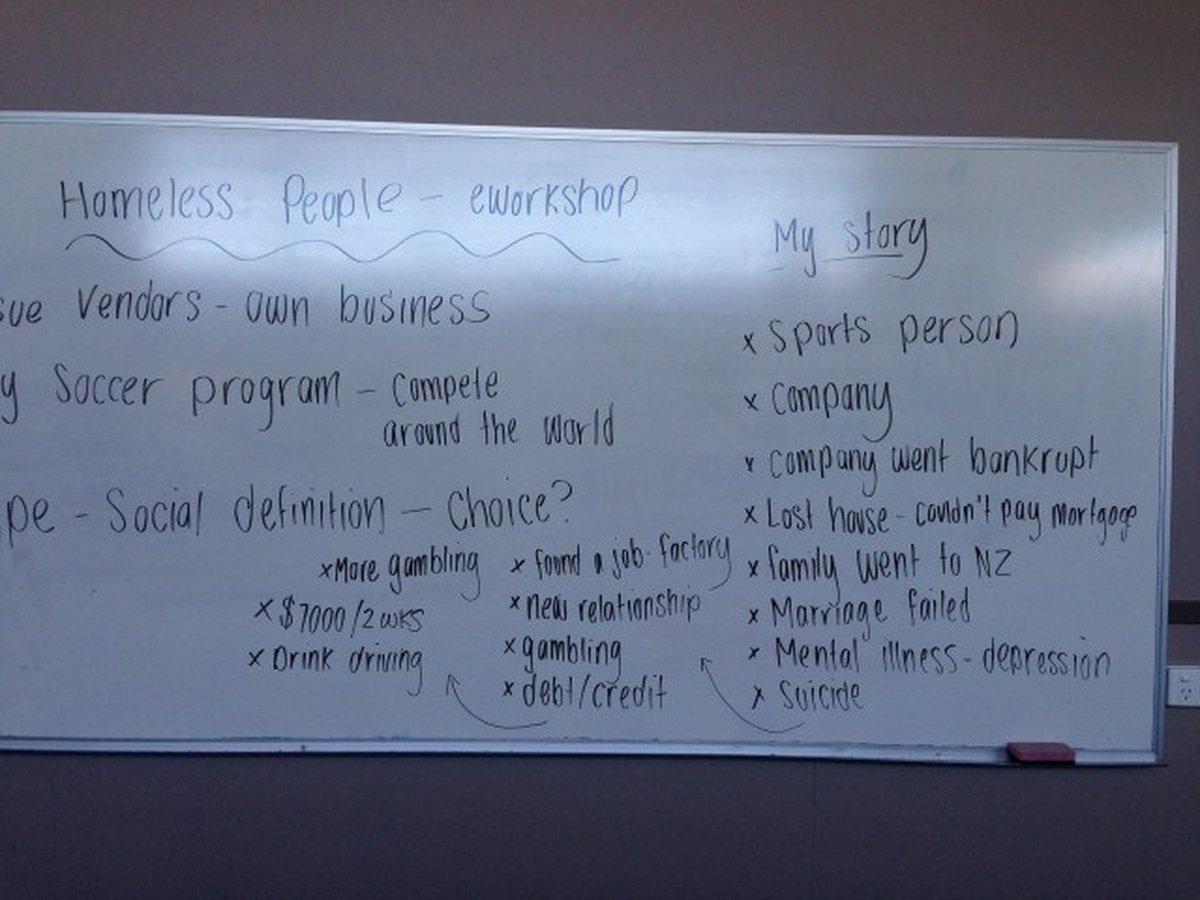 Homeless People - eworkshop
sue Vendors - own business
y Soccer program - compete
around the world
pe - Social definition - Choice?
My story
x Sports person
x Company
x Company went bankrupt
x Lost house - couldn't pay mortgage
x family went to NZ
x Marriage failed
x Mental illness - depression
x Suicide
x found a job - factory
x new relationship
x gambling
x debt/credit
x More gambling
x $7000/2wks
x Drink driving